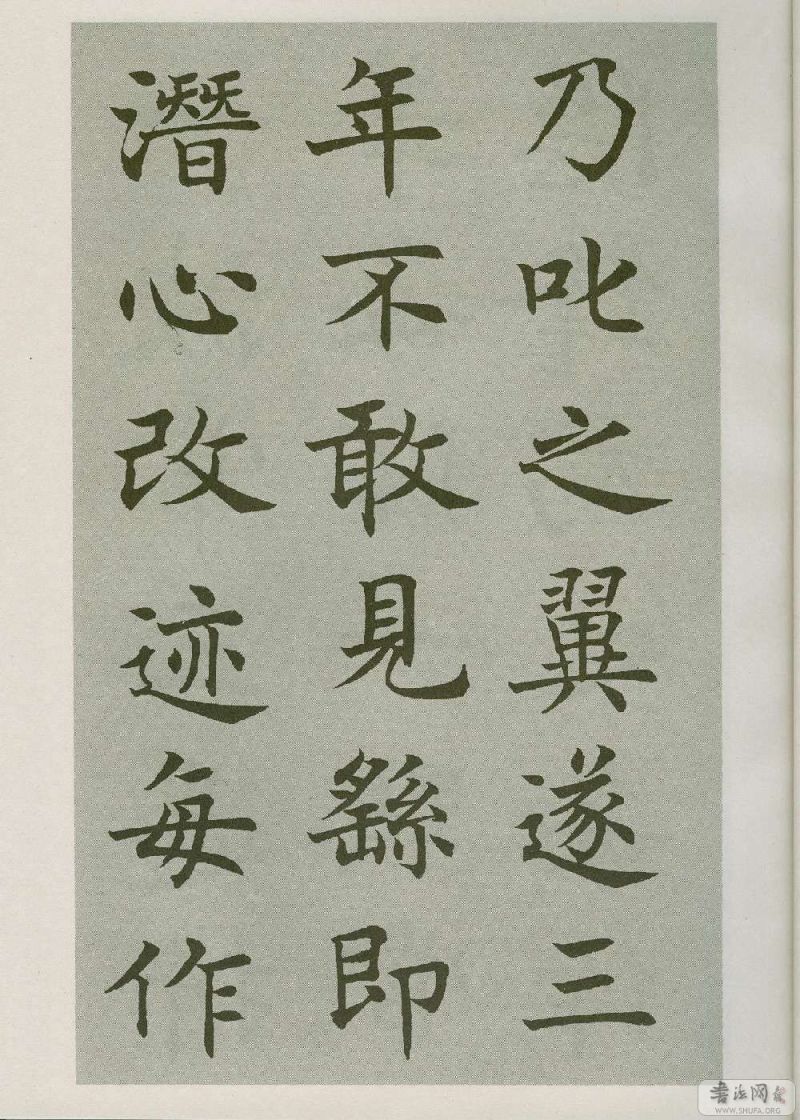 乃叱之翼遂三
年不敢見繇即
潛心改迹每作
书法网
WWW.SHUFA.ORG